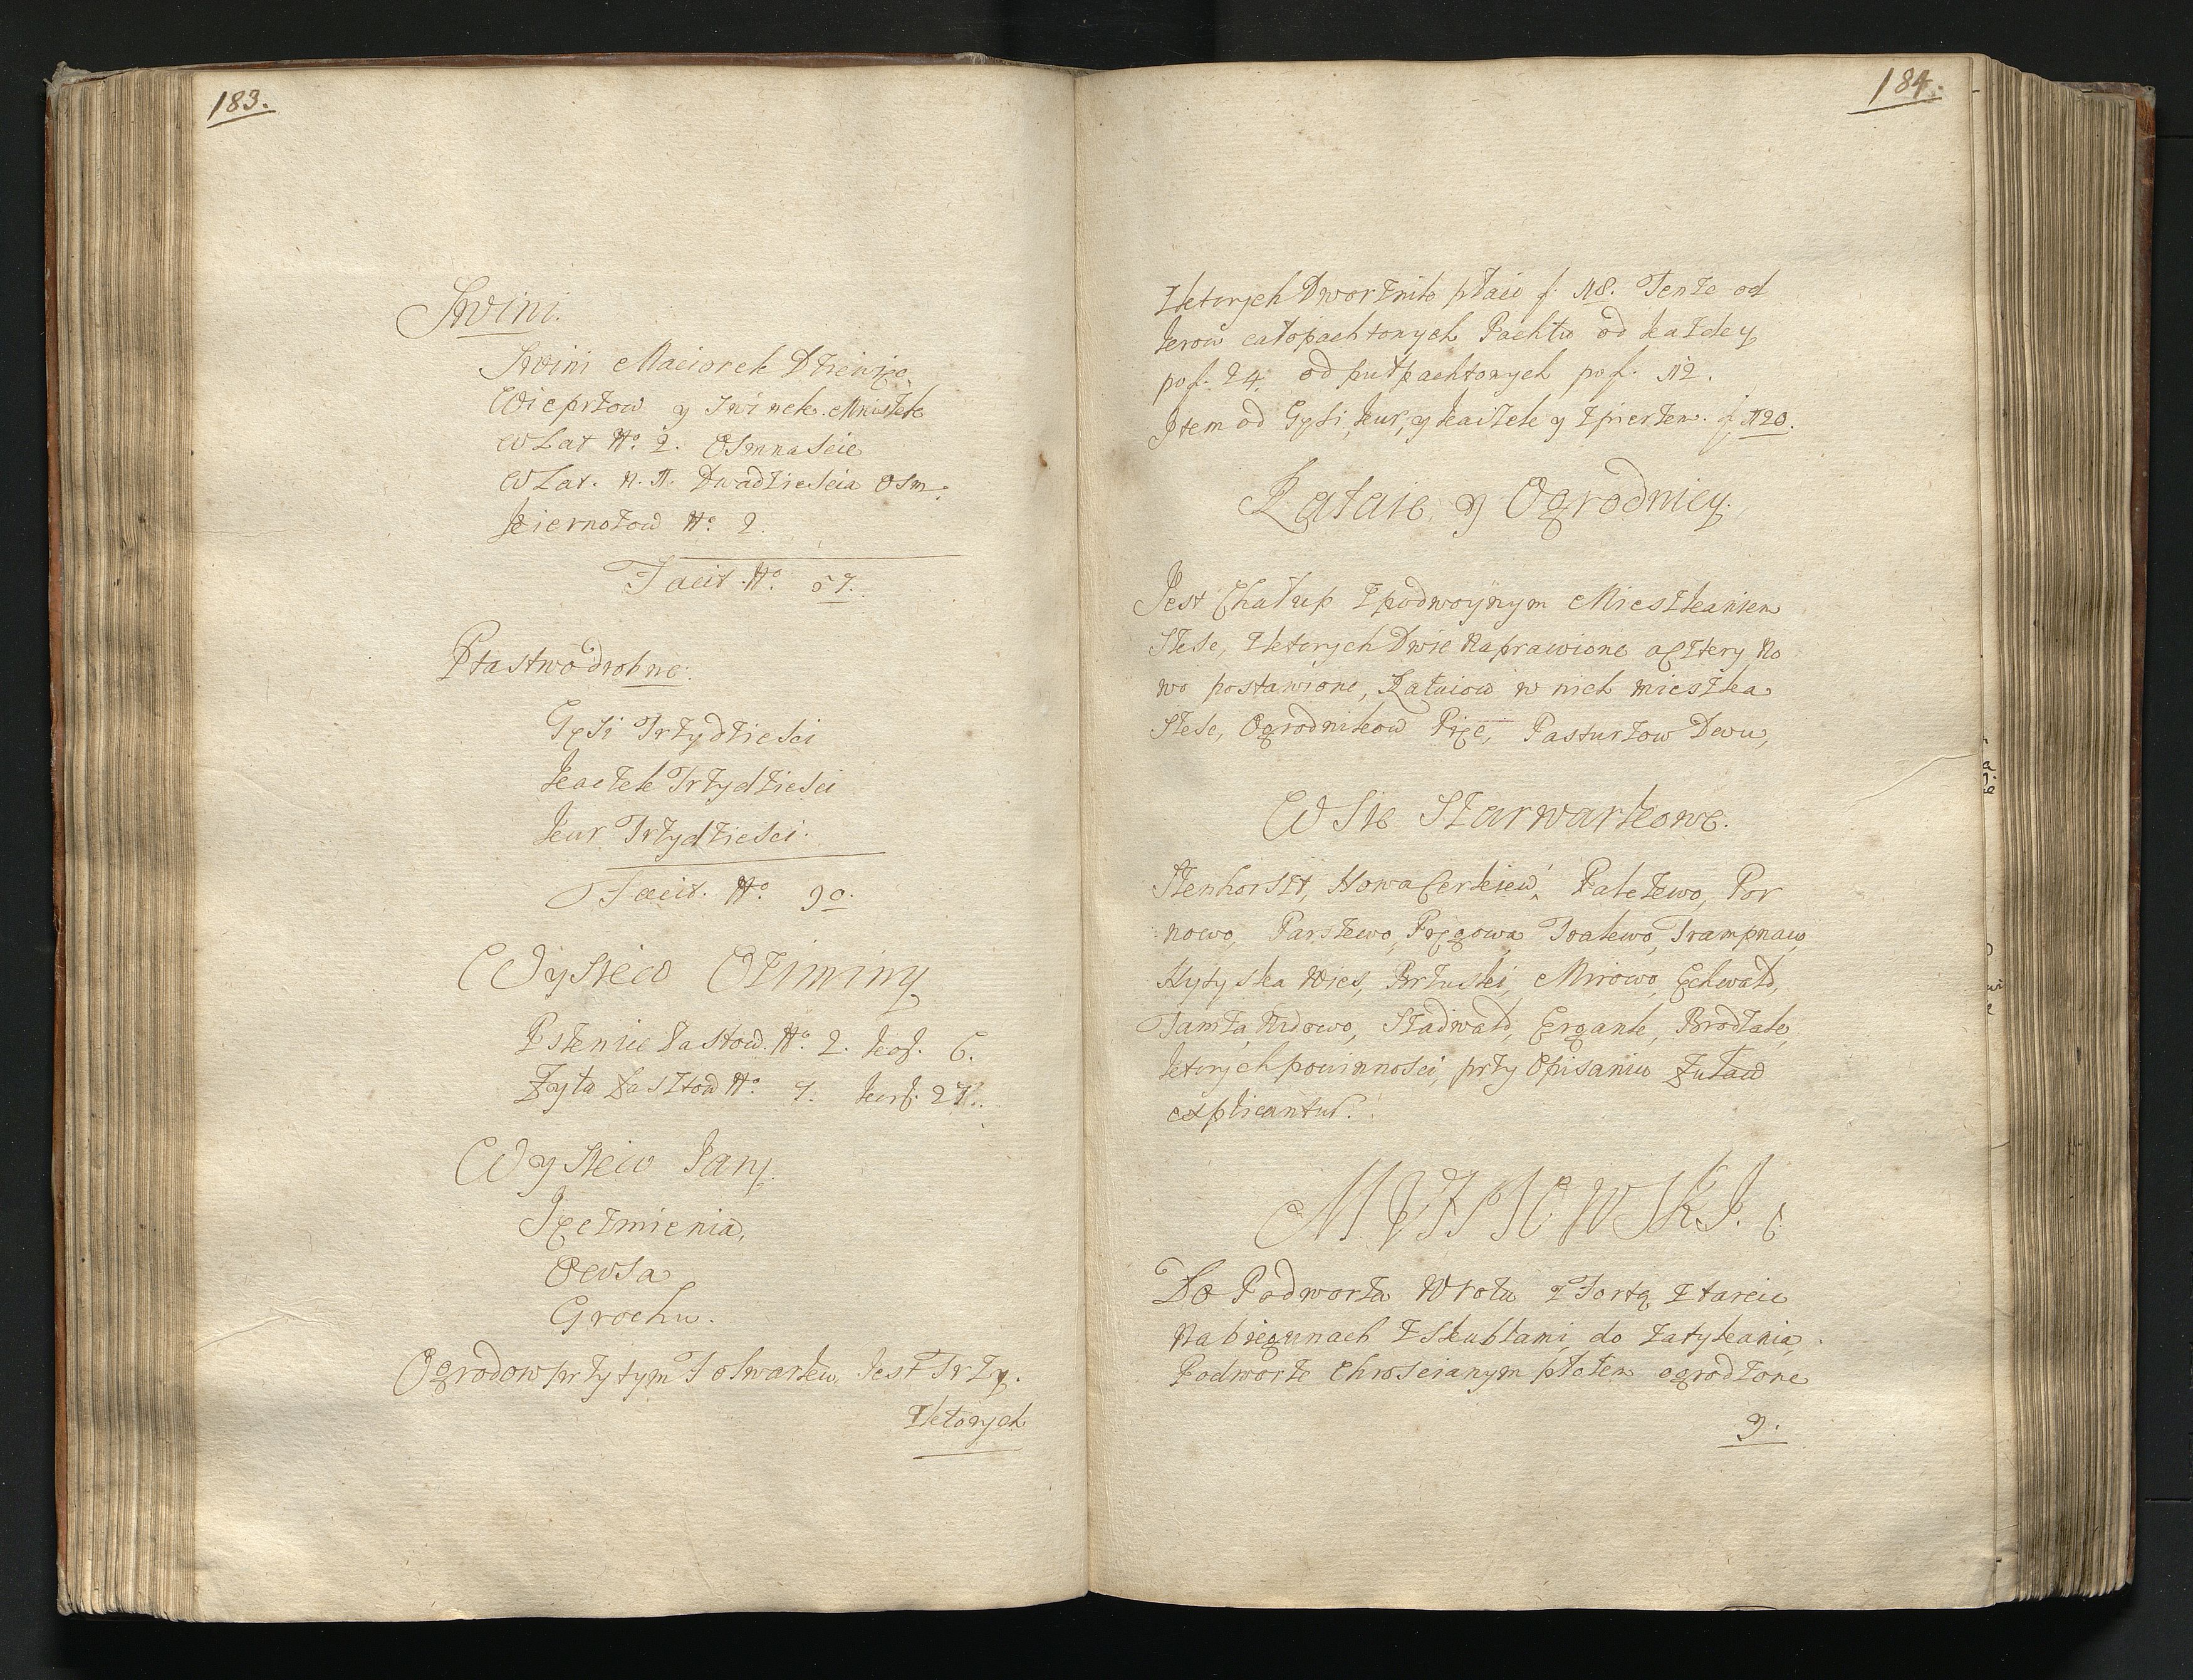 183.
Swini.
Swini Maciorek Dziewięc
Wieprzow y Swinek Mnieyszych
W Lat No. 2. Osmnascie
W Lat. N. 1. Dwadziescia Osm.
Kiernozow No. 2.
Facit No. 57.
Ptastwo drobne.
Gęsi Trzydziesci
Kaczek Trzydziesci
Kur Trzydziesci.
Facit. No. 90.
Wysiew Oziminy
Pszenice Łasztow. No. 2. kor. 6.
Zyta Łasztow No. 7. kor. 27.
Wysiew Jary.
Jęczmienia,
Owsa
Grochu.
Ogrodow przytym Folwarku Jest Trzy.
Zktorych
184.
Zktorych Dworznik płaci f. 18. Tenze od
krow całopachtonych Pachtu od kazdey
po f. 24. od pułpachtonych po f. 12.
Item od Gęsi, kur, y kaczek y zpierzem. f. 120.
Rataie y Ogrodnicy.
Jest Chałup zpodwoynym Mieszkaniem
Szesc, Zktorych Dwie naprawione a Cztery No
wo postawione, Rataiow w nich mieszka
Szesc, Ogrodnikow Pięc, Pasturzow Dwu,
Wsie Szarwarkowe.
Stenhorszt, Nowa Cerkiew, Palczewo, Por
nowo, Parszewo, Pręgowa Tralewo, Trampnaw,
Nytyska Wies, Parluski, Mirowo, Echwald,
Tamta Nidowo, Stadwald, Ergante, Brodzale,
ktorych powinnosci przy Opisaniu Zuław
explicantur.
MĄTOWSKI.
Do Podworza Wrota z Fortą Ztarcic
Na biegunach Zskublami do zatykania,
Podworze Chroscianym płotem ogrodzone
y.